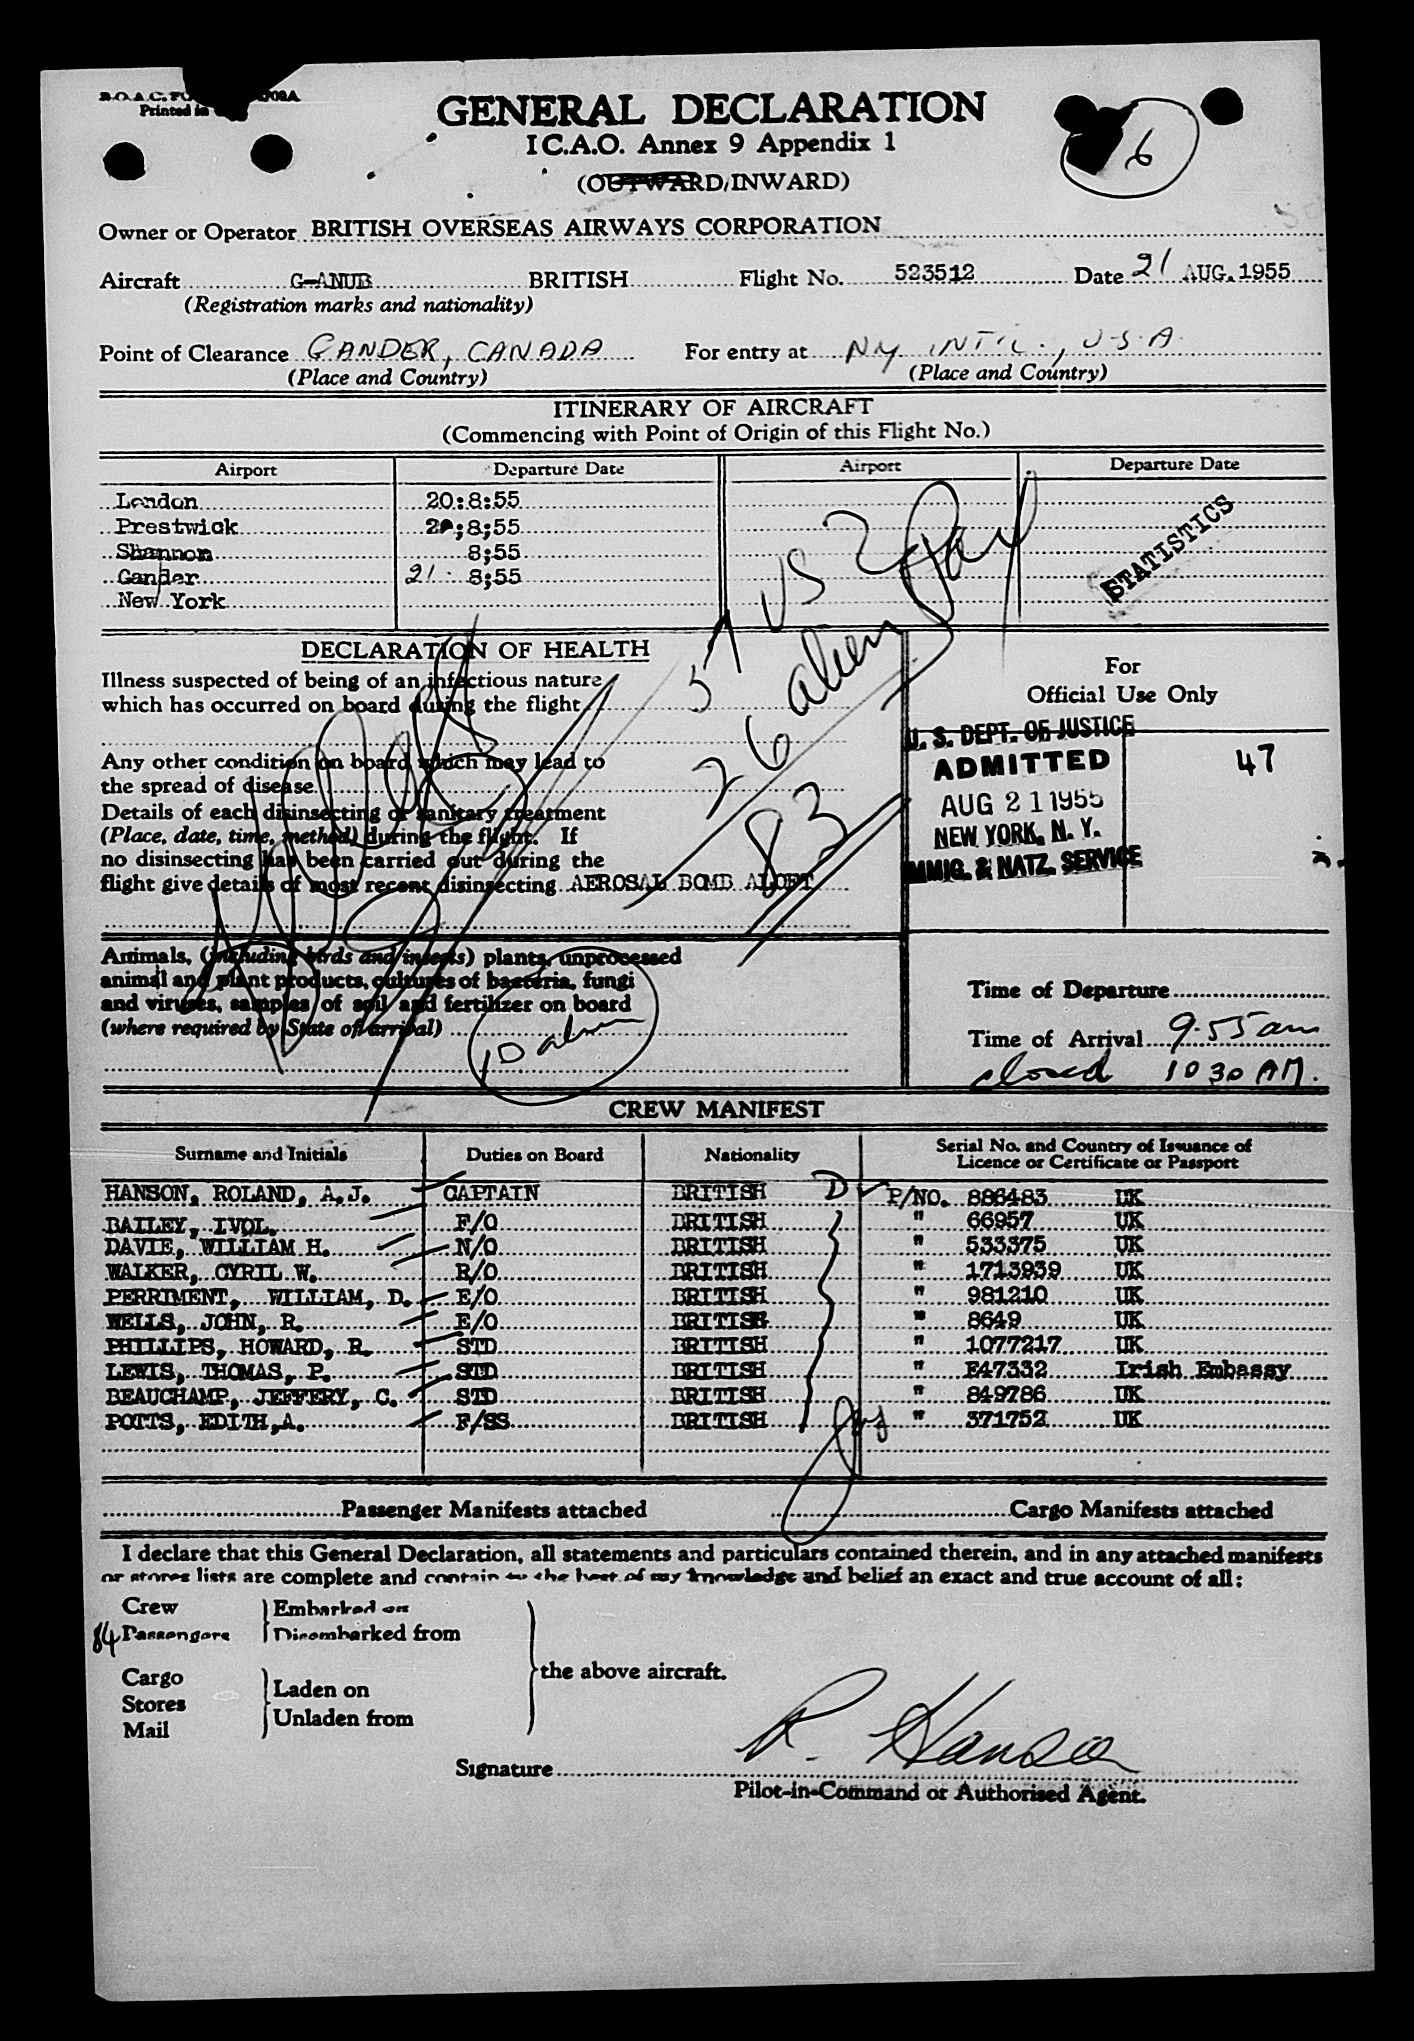 Printed in
GENERAL DECLARATION
I C.A.O. Annex 9 Appendix 1
(OUTWARD/INWARD)
6
Owner or Operator BRITISH OVERSEAS AIRWAYS CORPORATION
Aircraft G-ANUB BRITISH Flight No. 523512 Date 21 AUG. 1955
(Registration marks and nationality)
Point of Clearance GANDER, CANADA For entry at NY INT'L., U.S.A.
(Place and Country) (Place and Country)
ITINERARY OF AIRCRAFT
(Commencing with Point of Origin of this Flight No.)
Airport Departure Date Airport Departure Date
London 20:8:55
Prestwick 20;8;55
Shannon 8;55
Gander 21 8;55
New York
STATISTICS
57 US
26 alien
83
DECLARATION OF HEALTH
Illness suspected of being of an infectious nature
which has occurred on board during the flight
Any other condition on board which may lead to
the spread of disease
Details of each disinsecting or sanitary treatment
(Place, date, time, method) during the flight. If
no disinsecting has been carried out during the
flight give details of most recent disinsecting AEROSAL BOMB ALOFT
For
Official Use Only
U. S. DEPT. OF JUSTICE
ADMITTED
AUG 21 1955
NEW YORK, N. Y.
IMMIG. & NATZ. SERVICE
47
Animals, (including birds and insects) plants, unprocessed
animal and plant products, cultures of bacteria, fungi
and viruses, samples of soil and fertilizer on board
(where required by State of arrival)
10 alien
Time of Departure
Time of Arrival 9.55 am
closed 10 30 AM.
CREW MANIFEST
Surname and Initials Duties on Board Nationality Serial No. and Country of Issuance of
Licence or Certificate or Passport
HANSON, ROLAND, A.J. CAPTAIN BRITISH D P/NO. 886483 UK
BAILEY, IVOL. F/O BRITISH " 66957 UK
DAVIE, WILLIAM H. N/O BRITISH " 533375 UK
WALKER, CYRIL W. R/O BRITISH " 1713939 UK
PERRIMENT, WILLIAM, D. E/O BRITISH " 981210 UK
WELLS, JOHN, R. E/O BRITISH " 8649 UK
PHILLIPS, HOWARD, R. STD BRITISH " 1077217 UK
LEWIS, THOMAS, P. STD BRITISH " E47332 Irish Embassy
BEAUCHAMP, JEFFERY, C. STD BRITISH " 849786 UK
POTTS, EDITH,A. F/SS BRITISH " 371752 UK
Passenger Manifests attached Cargo Manifests attached
I declare that this General Declaration, all statements and particulars contained therein, and in any attached manifests
or stores lists are complete and contain to the best of my knowledge and belief an exact and true account of all:
Crew Embarked on
84 Passengers Disembarked from
the above aircraft.
Cargo
Stores Laden on
Mail Unladen from
R. Hanson
Signature
Pilot-in-Command or Authorised Agent.